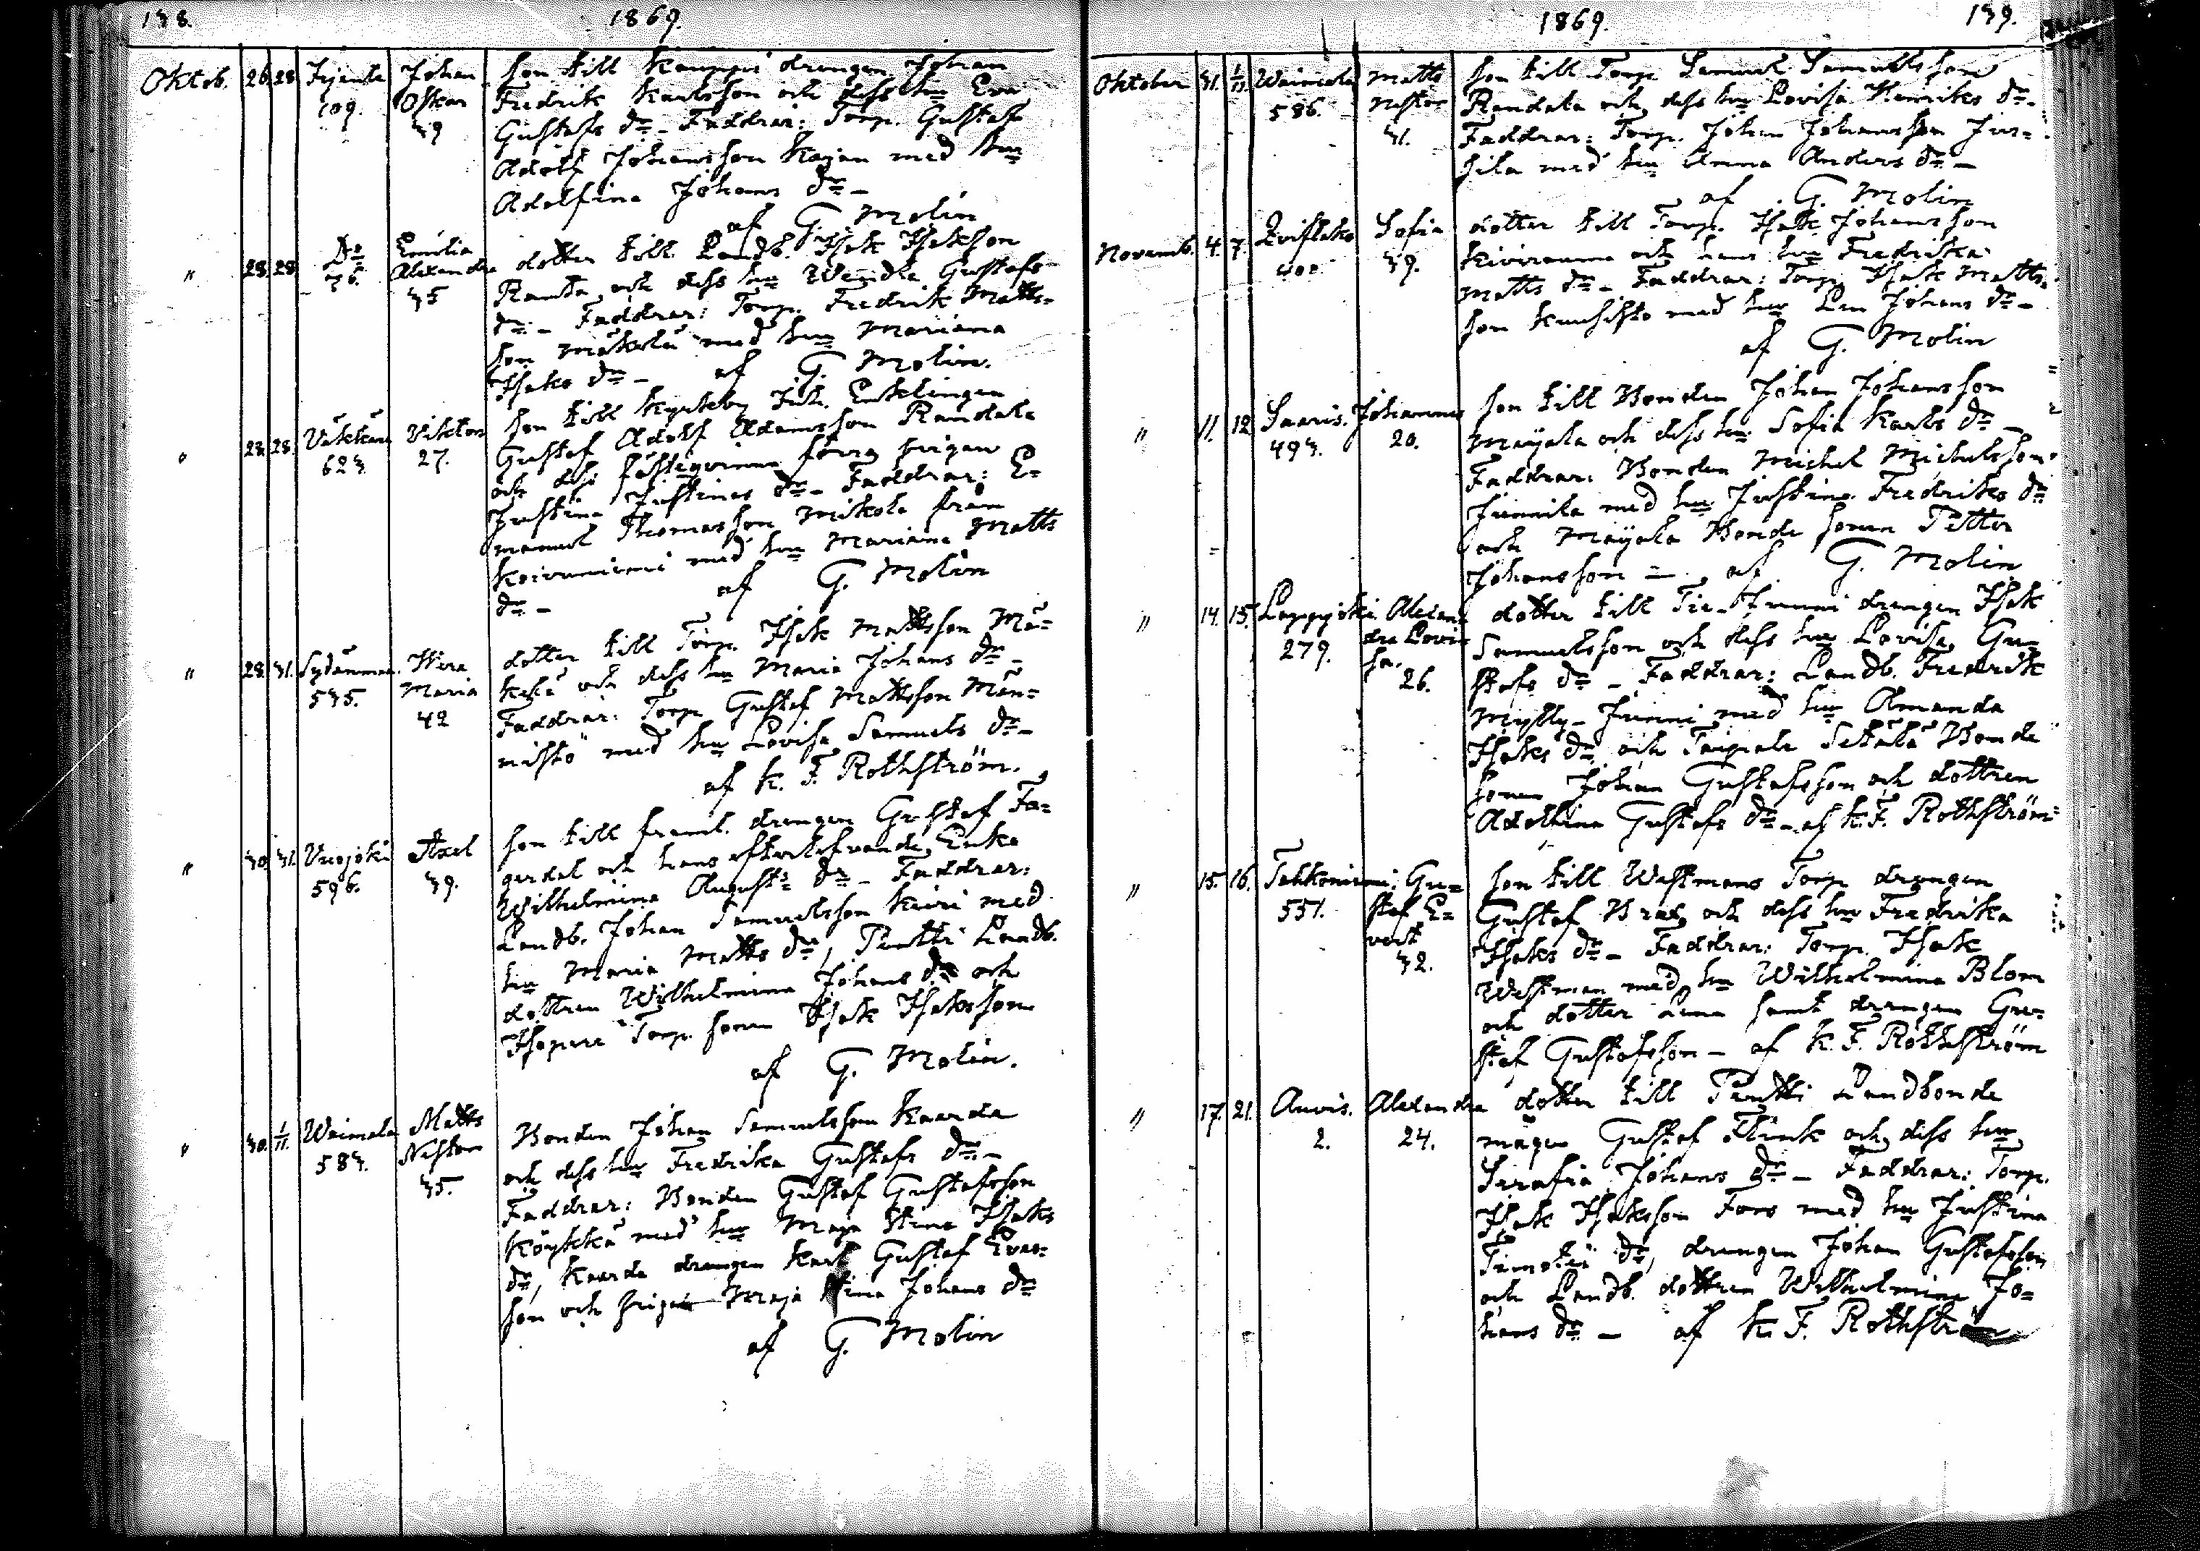 138. 1869.
Oktob. 26 28 Johan son till Kauppi drengen Johan
109. Oskar Fredrik Karlsson och dess hu Eva
39 Gustafs dr - Faddrar: Torp. Gustaf
Adolf Johansson Kajan med hu
Adolfina Johans dr -
af G. Molin
" 28 28 Do Emilia dotter till Landb. Isak Isaksson
76. Alexandra Ranta och dess hu Wendla Gustafs
35 dr - Faddrar: Torp. Fredrik Matts-
son Mäkelä med hu Mariana
Isaks dr - af G. Molin.
28. 28. Viktor son till Kyrkoby Inh. Enklingen
623. 27. Gustaf Adolf Adamsson Randala
och dess fästeqvinna förra pigan
Justina Justinas dr - Faddrar: E-
manuel Thomasson Mikola från
Koivuniemi med hu Mariana Matts
dr - af G. Molin
" 28. 31. Sydänmaa. Wera dotter till Torp. Isak Mattsson Mä-
535. Maria kelä och dess hu Maria Johans dr -
42 Faddrar: Torp. Gustaf Mattsson Män-
nistö med hu Lovisa Samuels dr -
af K. F. Rothström.
" 30. 31. Vuojoki Axel son till framl. drengen Gustaf Fa-
596. 39. gerdal och hans efterlefvande Enka
Wilhelmina Augusts dr - Faddrar:
Landb. Johan Samuelsson Kivi med
hu Maria Matts dr, Pentti Landb.
dottren Wilhelmina Johans dr och
Isopere Torp. sonen Isak Isaksson
af G. Molin.
" 30. 1/11. Weimela Matts Bonden Johan Samuelsson Kaarda
583. Nestor och dess hu Fredrika Gustafs dr -
35. Faddrar: Bonden Gustaf Gustafsson
Köykkä med hu Maja Stina Isaks
dr, Kaarda drengen Karl Gustaf Evas-
son och pigan Maja Stina Johans dr
af G. Molin
1869. 139.
Oktober 31. 1/11. Weimela Matts son till Torp. Samuel Samuelsson
586. Nestor Randala och dess hu Lovisa Henriks dr -
31. Faddrar: Torp. Johan Johansson Jus-
sila med hu Anna Anders dr -
af G. Molin
Novemb. 4. 7. Sofia dotter till Torp. Isak Johansson
39. Kiviranna och hans hu Fredrika
Matts dr - Faddrar: Torp. Isak Matts-
son Kuusisto med hu Lena Johans dr -
af G. Molin
" 11. 12 Saaris. Johannes son till Bonden Johan Johansson
493. 20. Mäyälä och dess hu Sofia Karls dr -
Faddrar: Bonden Michel Michelsson
Junnila med hu Justina Fredriks dr
och Mäyälä Bonde sonen Petter
Johansson - af G. Molin
" 14. 15. Lappijoki Alexan- dotter till drengen Isak
279. dra Lovi- Samuelsson och dess hu Lovisa Gu-
sa. stafs dr - Faddrar: Landb. Fredrik
26. Mylly-Junni med hu Amanda
Isaks dr och Taipale Setälä Bonde
sonen Johan Gustafsson och dottren
Adolfina Gustafs dr - af K. F. Rothström
" 15. 16. Tahkoniemi: Gu- son till Westmans Torp drengen
551. staf E- Gustaf och dess hu Fredrika
vert Isaks dr - Faddrar: Torp. Isak
32. Westman med hu Wilhelmina Blom
och dotter Lena samt drengen Gu-
staf Gustafsson - af K. F. Rothström
" 17. 21. Auvis. Alexandra dotter till Pentti Landbonde
2. 24. mågen Gustaf Flink och dess hu
Serafia Johans dr - Faddrar: Torp.
Isak Isaksson Fors med hu Justina
Timotei dr, drengen Johan Gustafsson
och Landb. dottren Wilhelmina Jo-
hans dr - af K. F. Rothström